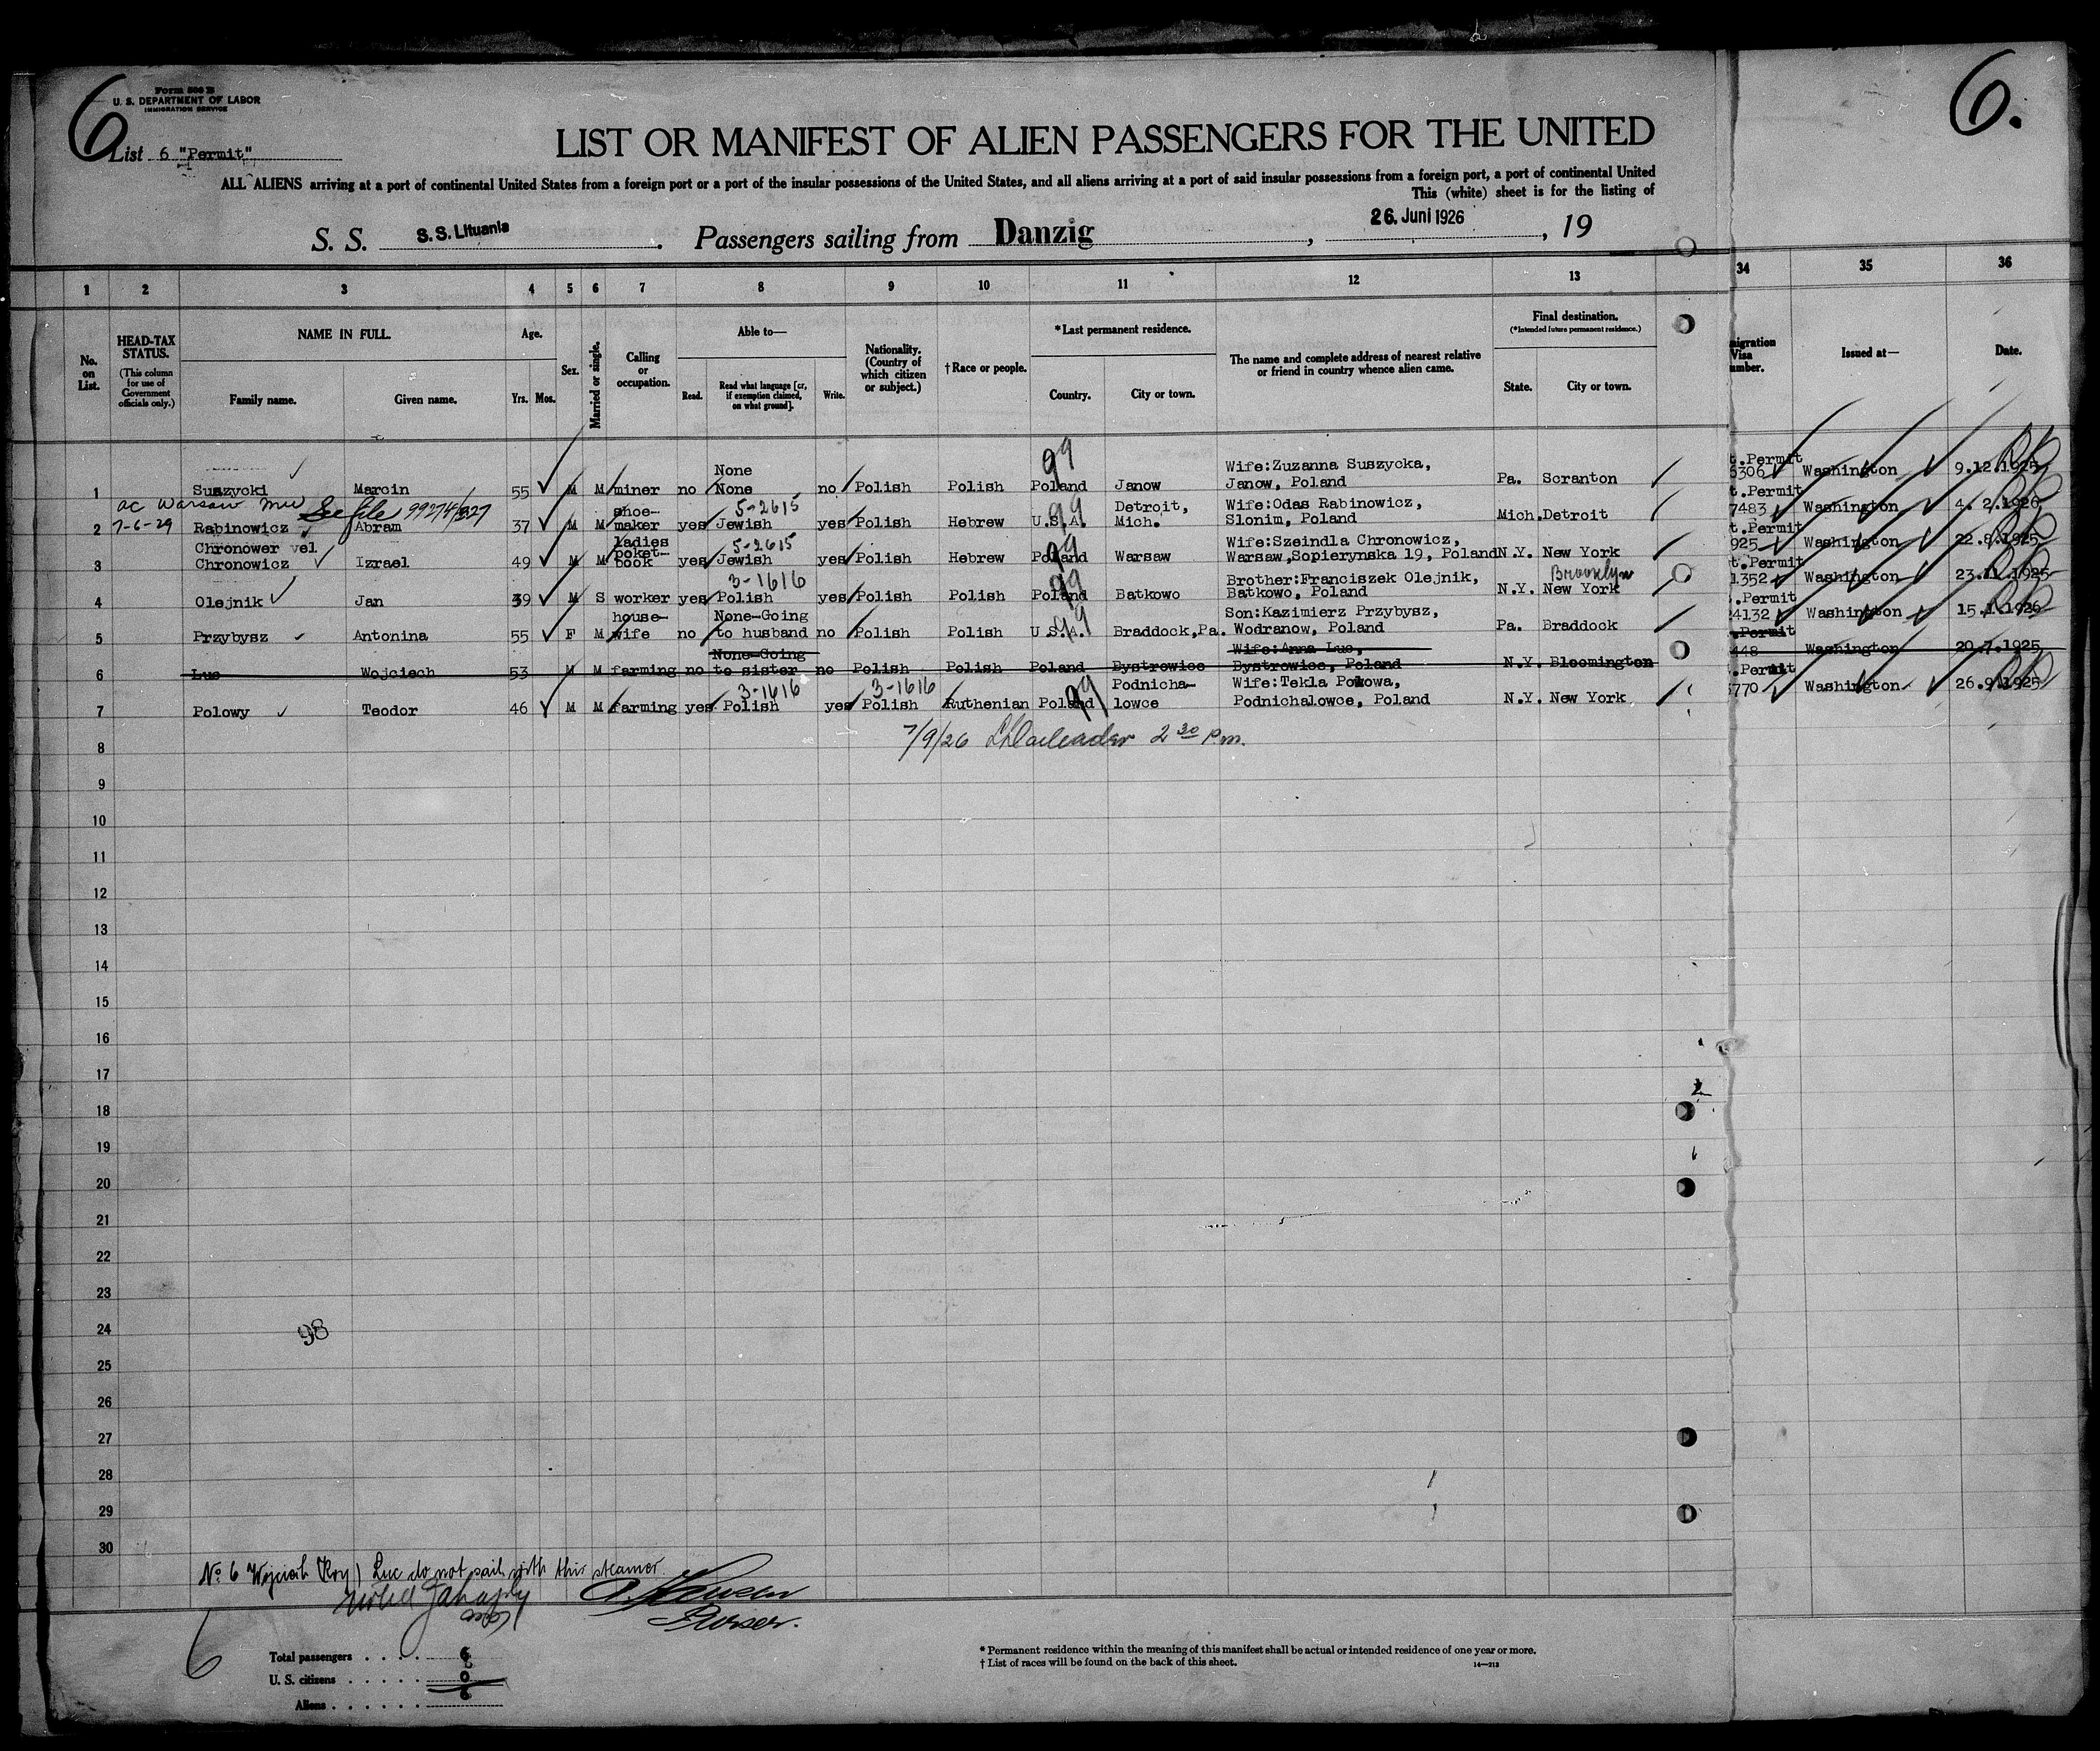 6
Form 500 B
U. S. DEPARTMENT OF LABOR
IMMIGRATION SERVICE
6.
List 6 "Permit"
LIST OR MANIFEST OF ALIEN PASSENGERS FOR THE UNITED
ALL ALIENS arriving at a port of continental United States from a foreign port or a port of the insular possessions of the United States, and all aliens arriving at a port of said insular possessions from a foreign port, a port of continental United
This (white) sheet is for the listing of
S. S. S.S. Lituania. Passengers sailing from Danzig, 26. Juni 1926, 19
1 2 3 4 5 6 7 8 9 10 11 12 13 34 35 36
No. on List.
HEAD-TAX STATUS.
(This column for use of Government officials only.)
NAME IN FULL.
Family name. Given name.
Age.
Yrs. Mos.
Sex.
Married or single.
Calling or occupation.
Able to—
Read. Read what language [or, if exemption claimed, on what ground]. Write.
Nationality. (Country of which citizen or subject.)
†Race or people.
*Last permanent residence.
Country. City or town.
The name and complete address of nearest relative or friend in country whence alien came.
Final destination.
(*Intended future permanent residence.)
State. City or town.
migration Visa umber.
Issued at—
Date.
1 Suszycki Marcin 55 M M miner no None None no Polish Polish Poland 99 Janow Wife:Zuzanna Suszycka, Janow, Poland Pa. Scranton t.Permit 5306 Washington 9.12.1925
ac Warsaw See file 99274/327
7-6-29
2 Rabinowicz Abram 37 M M shoe-maker yes 5-2615 Jewish yes Polish Hebrew U.S.A. 99 Detroit, Mich. Wife:Odas Rabinowicz, Slonim, Poland Mich. Detroit t.Permit 7483 Washington 4. 2.1926
3 Chronower vel Chronowicz Izrael 49 M M ladies poket-book yes 5-2615 Jewish yes Polish Hebrew Poland 99 Warsaw Wife:Szeindla Chronowicz, Warsaw,Sopierynska 19, Poland N.Y. New York t.Permit 925 Washington 22.8.1925
4 Olejnik Jan 39 M S worker yes 3-1616 Polish yes Polish Polish Poland 99 Batkowo Brother:Franciszek Olejnik, Batkowo, Poland N.Y. Brooklyn New York t.Permit 1352 Washington 23.11.1925
5 Przybysz Antonina 55 F M house-wife no None-Going to husband no Polish Polish U.S.A. 99 Braddock,Pa. Son:Kazimierz Przybysz, Wodranow, Poland Pa. Braddock .Permit 24132 Washington 15.1.1926
6 Luc Wojciech 53 M M farming no None-Going to sister no Polish Polish Poland Bystrowice Wife:Anna Luc, Bystrowice, Poland N.Y. Bloomington .Permit 448 Washington 20.7.1925
7 Polowy Teodor 46 M M farming yes 3-1616 Polish yes 3-1616 Polish Ruthenian Poland 99 Podnicha-lowce Wife:Tekla Polowa, Podnichalowce, Poland N.Y. New York .Permit 5770 Washington 26.9.1925
7/9/26 2 30 P.m.
8
9
10
11
12
13
14
15
16
17
18
19
20
21
22
23
24
98
25
26
27
28
29
30
No 6 Wojciech Luc do not sail with this steamer
Purser.
6
Total passengers . . . . 6
U. S. citizens . . . . . 0
Aliens . . . . . . 6
* Permanent residence within the meaning of this manifest shall be actual or intended residence of one year or more.
† List of races will be found on the back of this sheet.
14—212